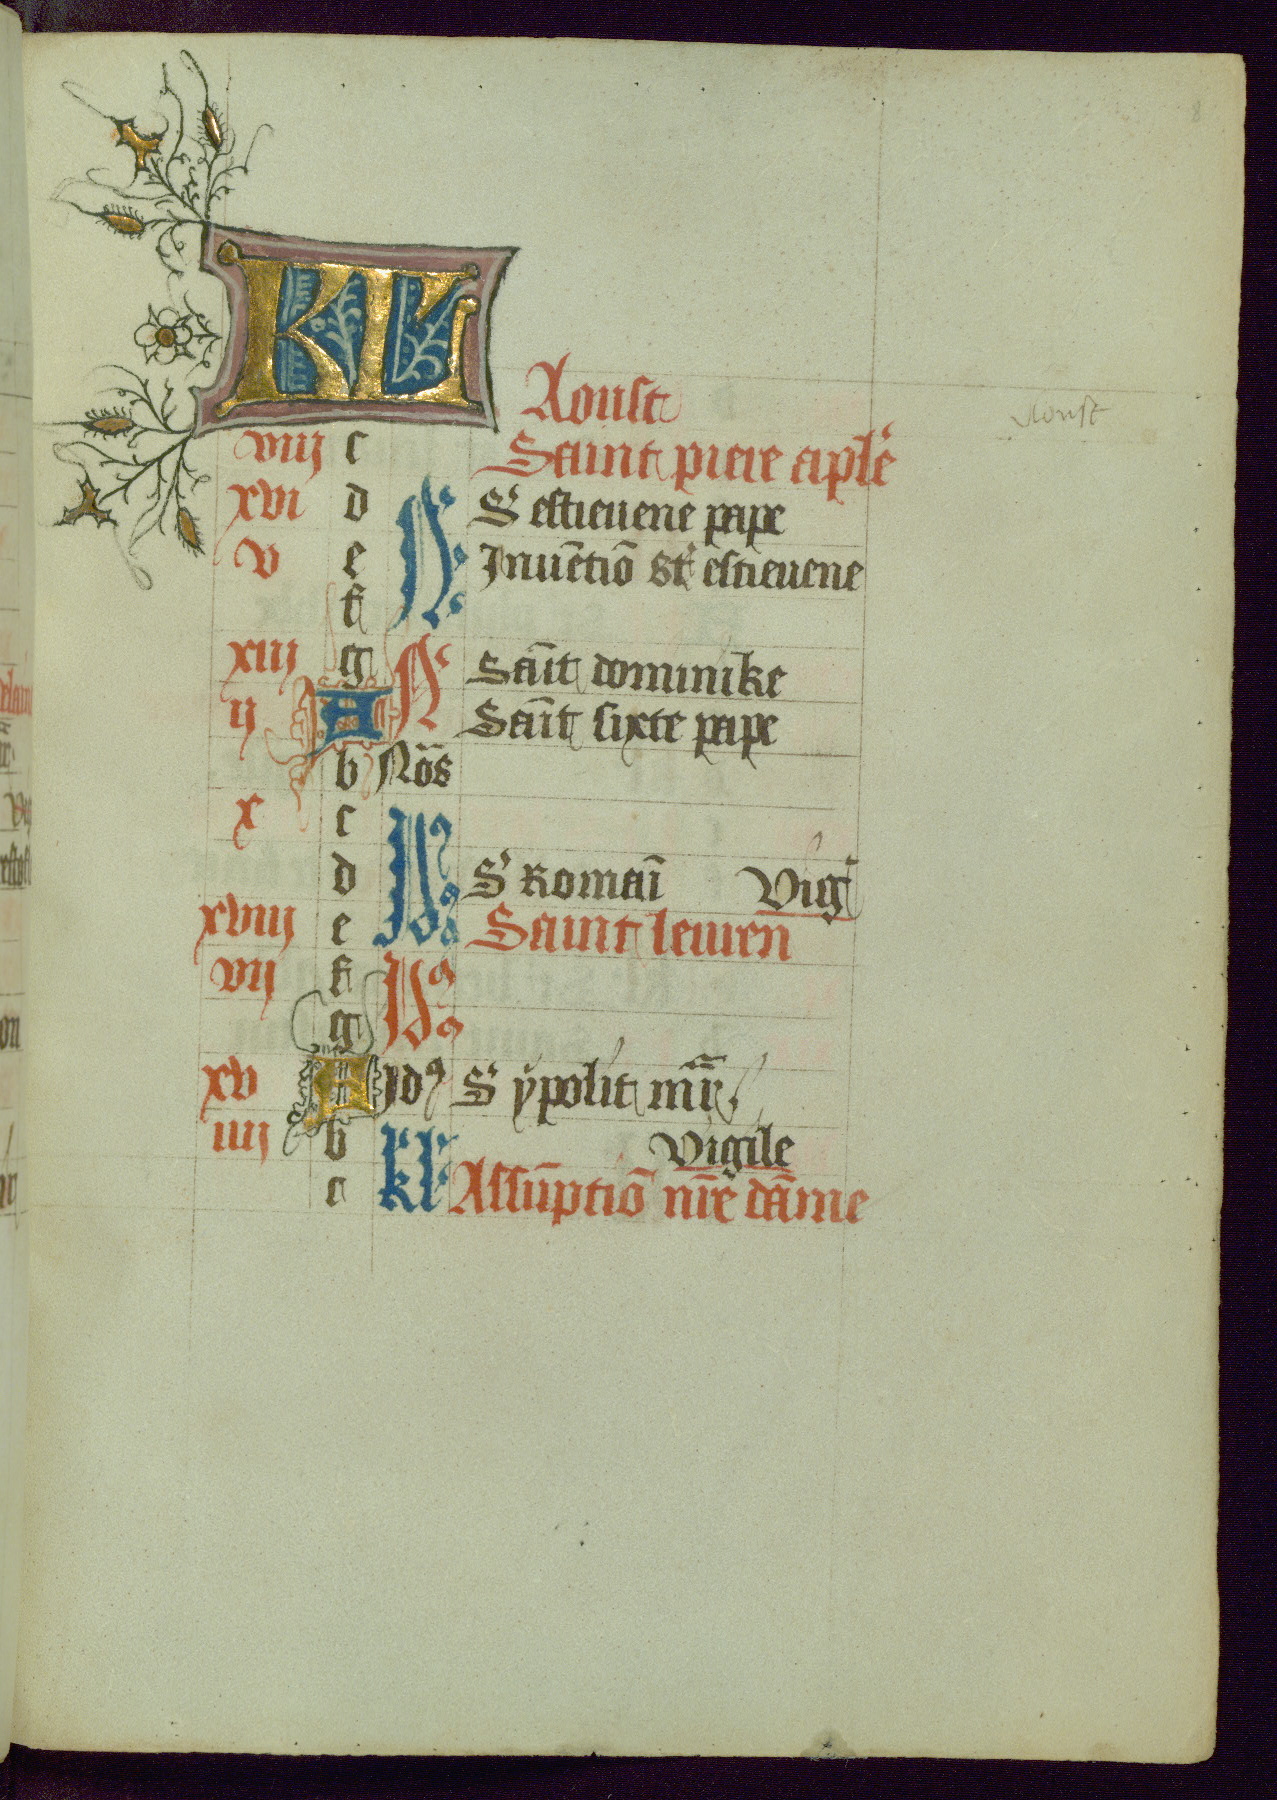 8
KL Aoust
Aoust
viij c Saint piere aple
xvi d N S' estieuene pape
v e Inuētiō st' estieuene
f
xiij g N Saīt dominike
ij A Saīt sixte pape
b Noẽs
x c
d S' Romaī Vig'
xviij e Saint leuren
vij f
g
xv A Id9 S' ypolit mr̄
iiij b Vigile
c kl' Assūptiō nr̄e dāme